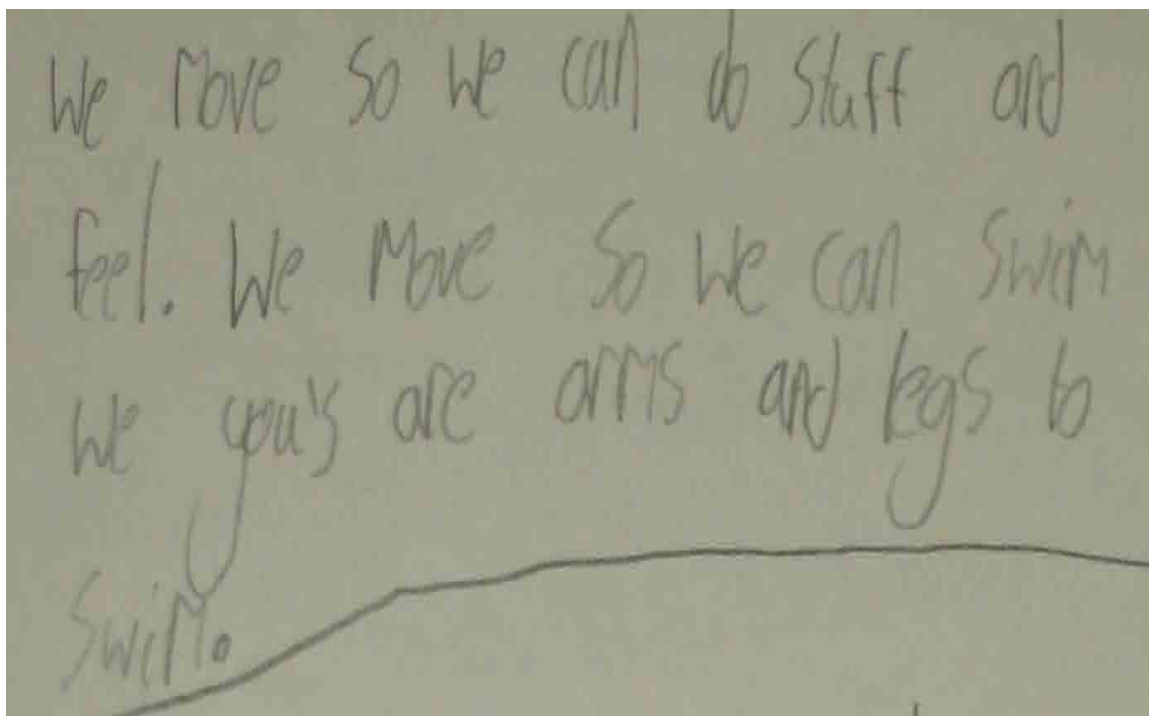 We move so we can do stuff and
feel. We move so we can swim
we you's are arms and legs to
swim.